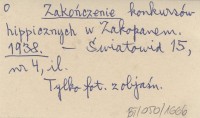 o Zakończenie konkursów
hippicznych w Zakopanem.
1938. - Światowid 15,
nr 4, il.
Tylko fot. z objaśn.